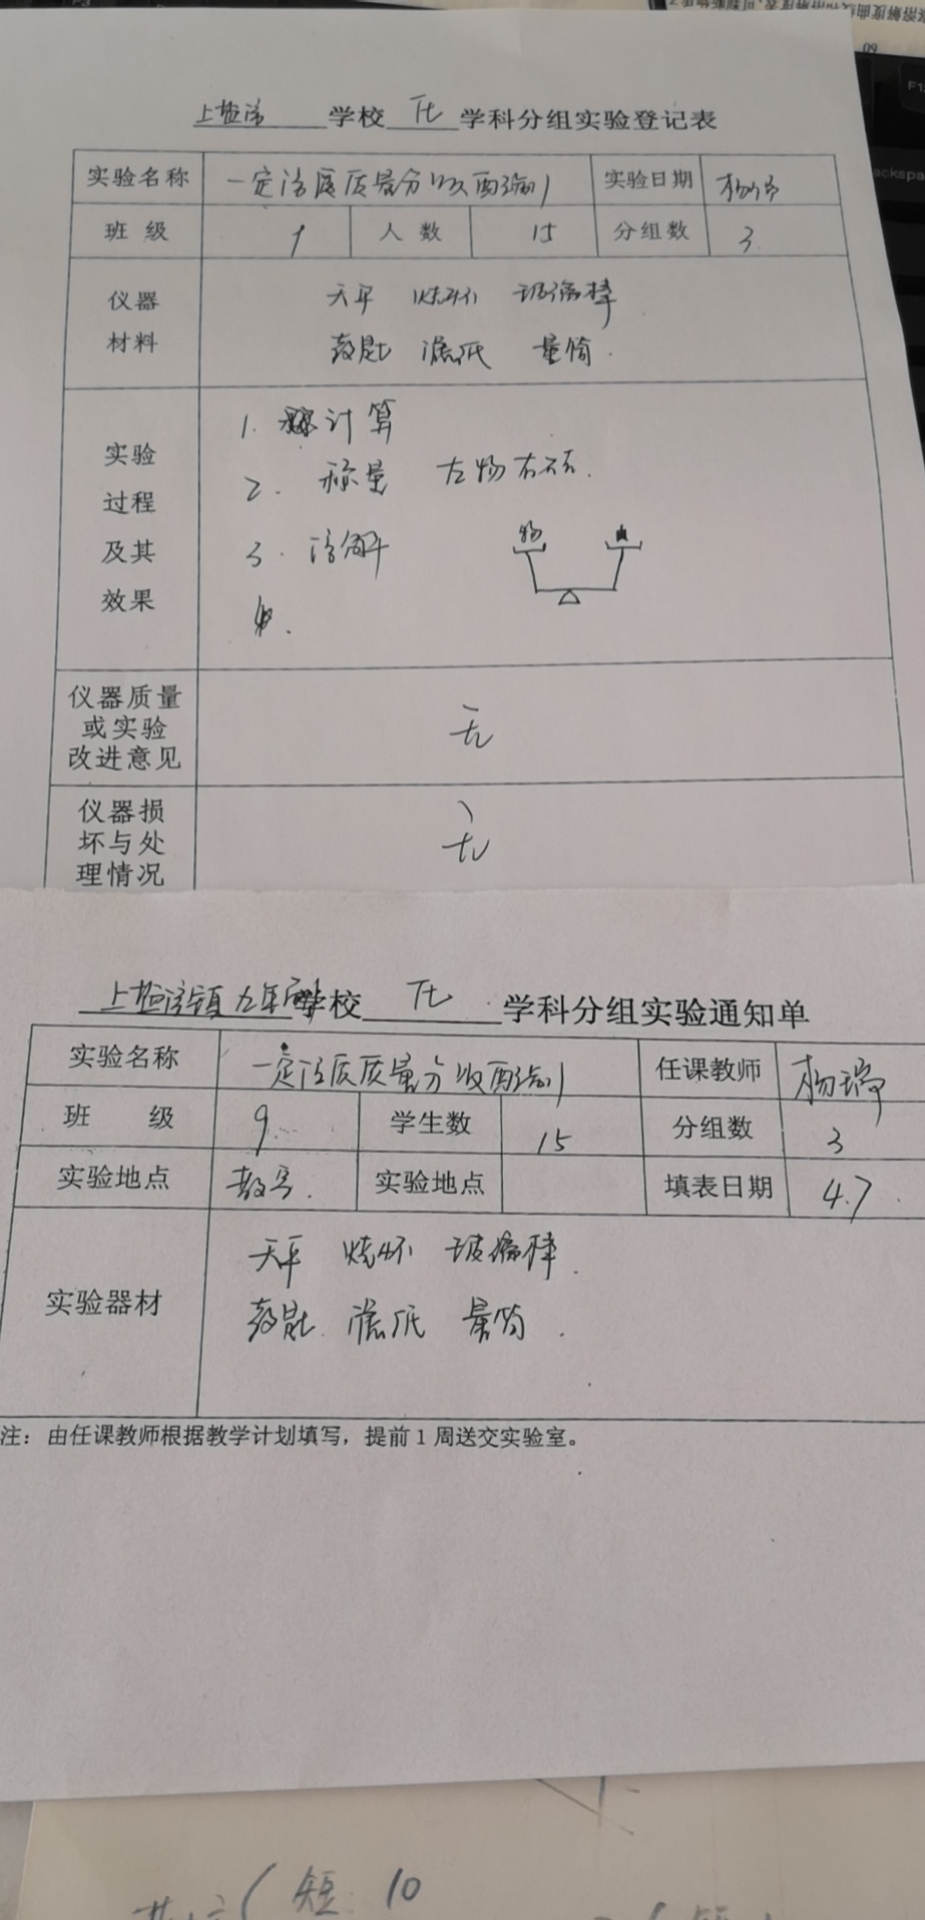 学校 化 学科分组实验登记表
实验名称 一定溶质质量分数配制 实验日期
班级 9 人数 15 分组数 3
仪器材料 天平 烧杯 玻璃棒
药匙 滤纸 量筒.
实验过程及其效果 1. 计算
2. 称量 左物右码.
3. 溶解
物
仪器质量或实验改进意见 无
仪器损坏与处理情况 无
学校 化 学科分组实验通知单
实验名称 一定溶质质量分数配制 任课教师 杨瑞
班 级 9 学生数 15 分组数 3
实验地点 教室. 实验地点 填表日期 4.7.
实验器材 天平 烧杯 玻璃棒.
药匙. 滤纸 量筒.
注：由任课教师根据教学计划填写，提前1周送交实验室。
短: 10